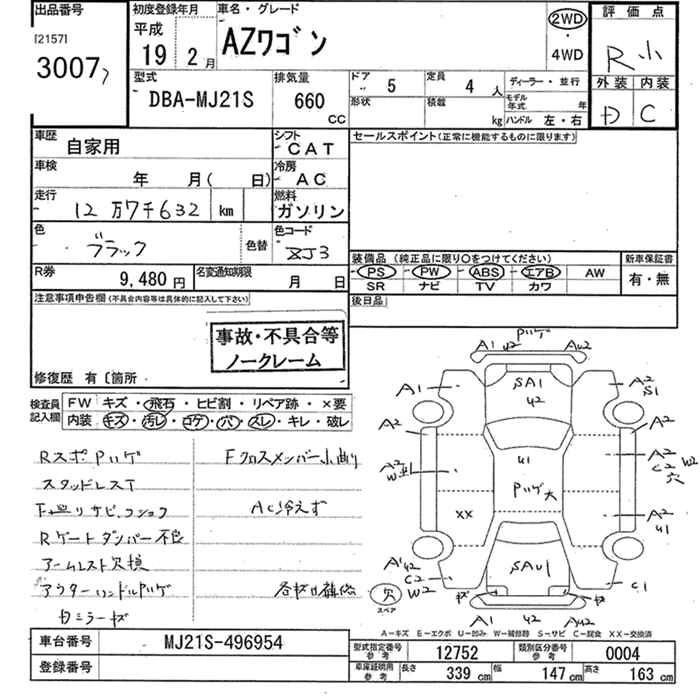 出品番号
[2157]
3007
初度登録年月
平成
19 年 2 月
車名・グレード
AZワゴン
2WD
・
4WD
評価点
R 小
外装 内装
D C
型式
DBA-MJ21S
排気量
660
CC
ドア
5
定員
4 人
ディーラー・並行
形状
積載
kg
モデル年式 年
ハンドル 左・右
車歴
自家用
シフト
CAT
セールスポイント(正常に機能するものに限ります)
車検
年 月( 日)
冷房
AC
走行
12 万7千632 km
燃料
ガソリン
色
ブラック
色替
色コード
ZJ3
装備品 (純正品に限り〇をつけてください)
PS PW ABS エアB AW
SR ナビ TV カワ
新車保証書
有・無
R券
9,480 円
名変通知期限
月 日
後日品
注意事項申告欄(不具合内容等は具体的に記入して下さい)
事故・不具合等
ノークレーム
修復歴 有 〔箇所
検査員記入欄
FW キズ・飛石・ヒビ割・リペア跡・×要
内装 キズ・汚レ・コゲ・穴・スレ・キレ・破レ
RスポPハゲ
Fクロスメンバー小曲り
スタッドレスT
AC冷えず
Rゲートダンパー不良
アームレスト欠損
アウターハンドルPハゲ
Pハゲ
A1 U2 AU2
A1
SA1
U2
A2
S1
A2
A2
U1
A2
C2 穴
W2
Pハゲ大
XX
A2
U1
A1 U2
C2
W2
SAU1
C1
穴
スペア
A1 U2 AU2
A-キズ E-エクボ U-凹み W-補修跡 S-サビ C-腐食 XX-交換済
車台番号
MJ21S-496954
登録番号
型式指定番号
参考
12752
類別区分番号
参考
0004
車庫証明用
参考
長さ
339 cm
幅
147 cm
高さ
163 cm